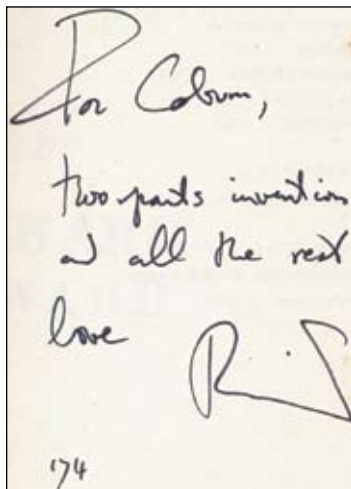 For Coburn,
two parts invention
and all the rest
love
'74